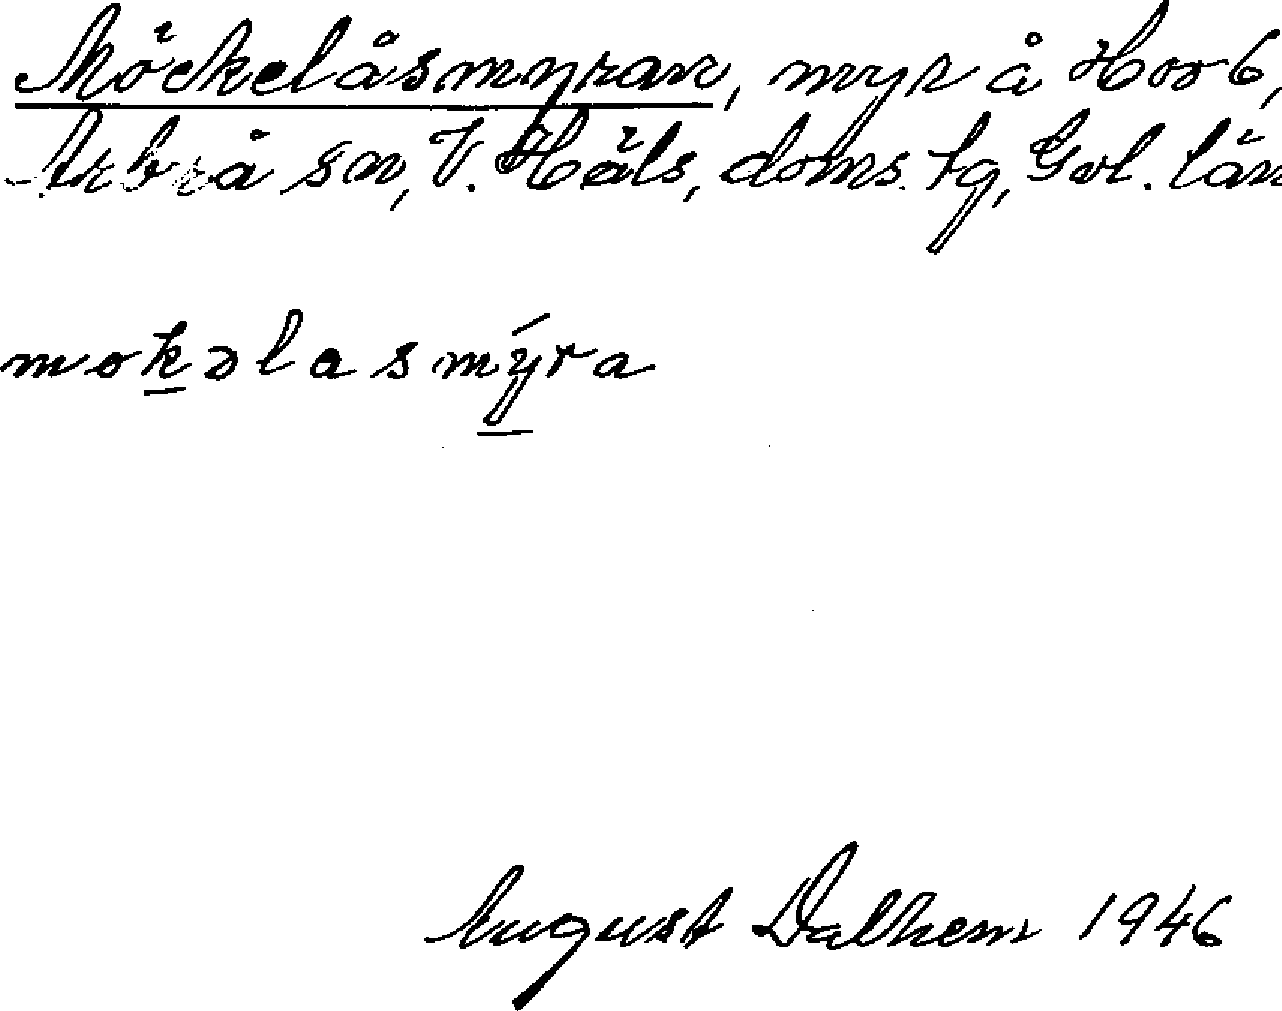 Möckelåsmyran, myr å Hov 6,
Arbrå sn, V. Häls, doms. tg, Gvl. län
mokəlasmýra
August Dalhem 1946